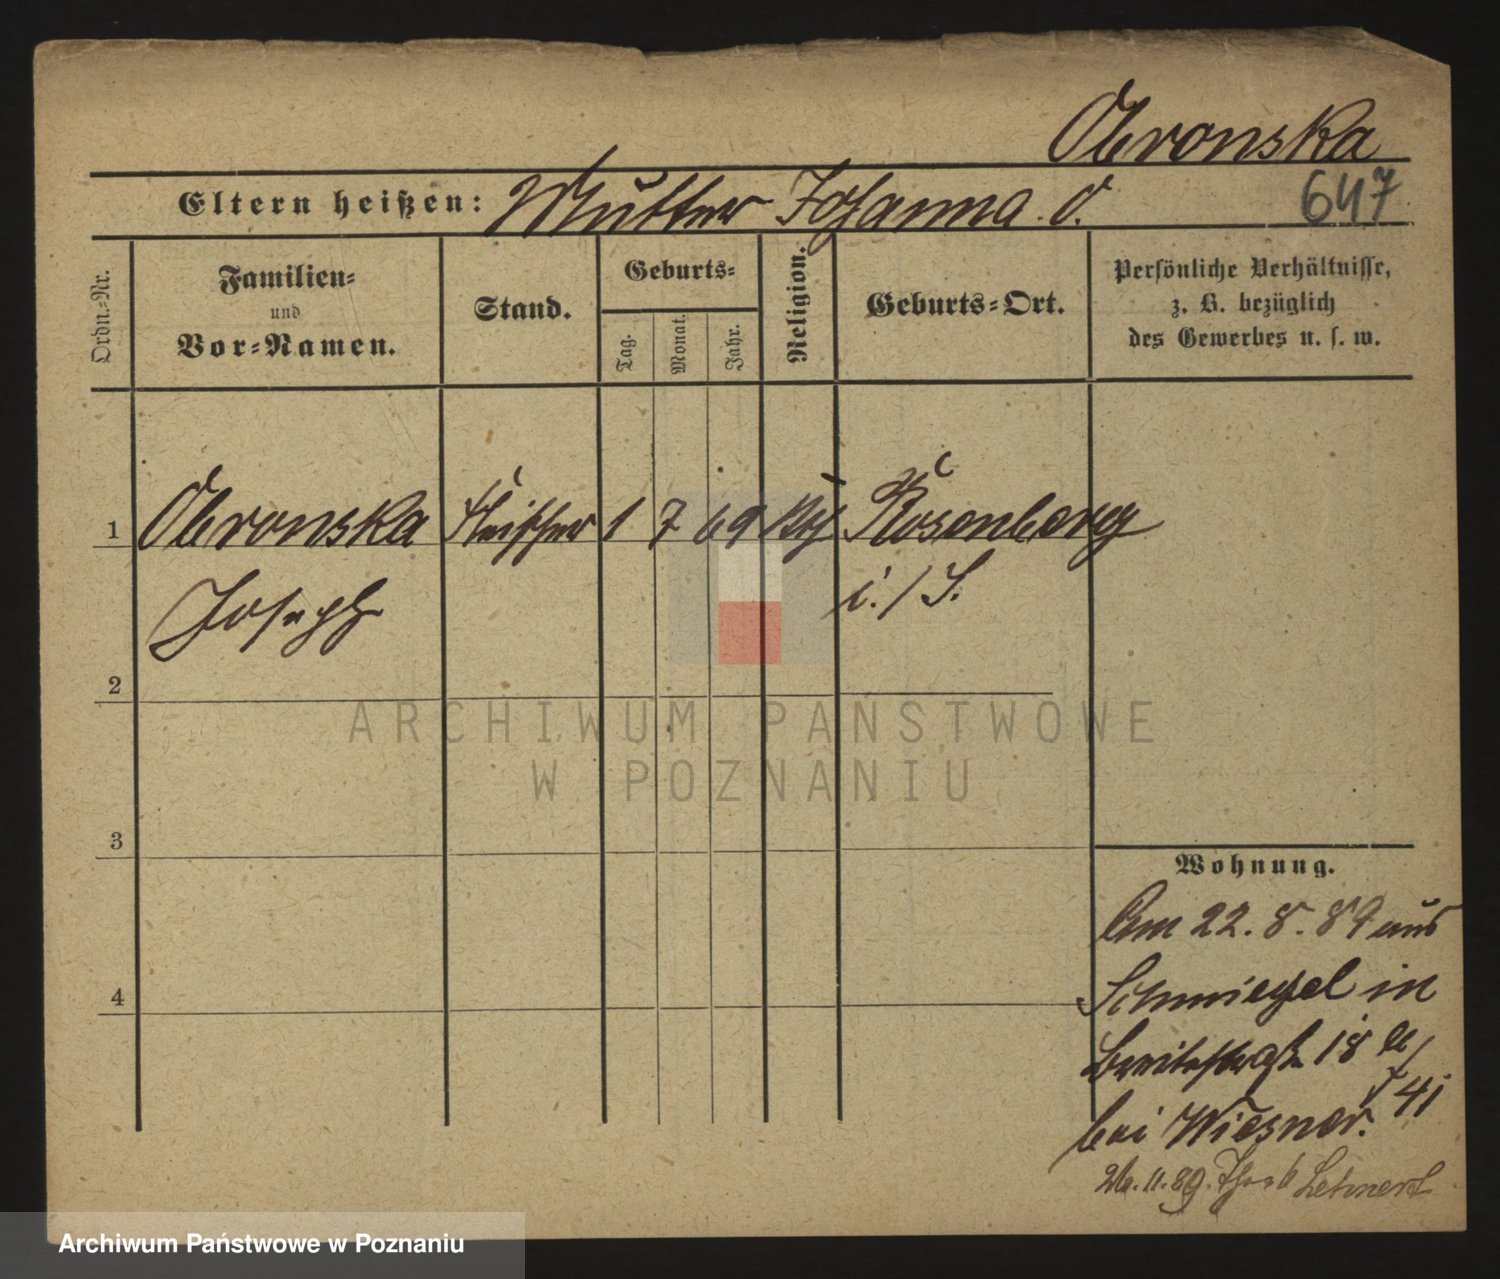 Obronska
Eltern heißen: Mutter Johanna O.
647
Ordn.-Nr.
Familien-
und
Vor-Namen.
Stand.
Geburts-
Tag.
Monat.
Jahr.
Religion.
Geburts-Ort.
Persönliche Verhältnisse,
z. B. bezüglich
des Gewerbes u. s. w.
1 Obronska Fleischer 1 7 69 Rosenberg
Joseph i./S.
2
3
4
Wohnung.
Am 22.8.89 aus
Schmiegel in
Breitestraße 18
bei Wiesner. 41
26.11.89. Lehnert
ARCHIWUM PAŃSTWOWE
W POZNANIU
Archiwum Państwowe w Poznaniu